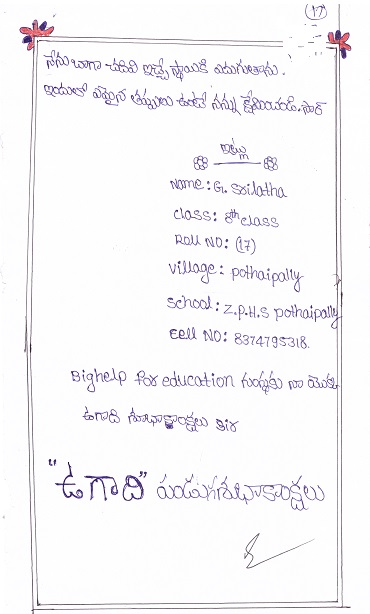 (17)
నేను బాగా చదివి ఇచ్చే స్థాయికి ఎదుగుతాను.
ఇందులో ఏమైన తప్పులు ఉంటే నన్ను క్షేమించండి. సార్
ఇట్లు
Name: G. Srilatha
class: 8th class
Roll NO: (17)
village: pothaipally
school: Z.P.H.S pothaipally
Cell NO: 8374795318.
Bighelp for education సంస్థకు నా యొక్క
ఉగాది శుభాకాంక్షలు sir
"ఉగాది" పండుగ శుభాకాంక్షలు